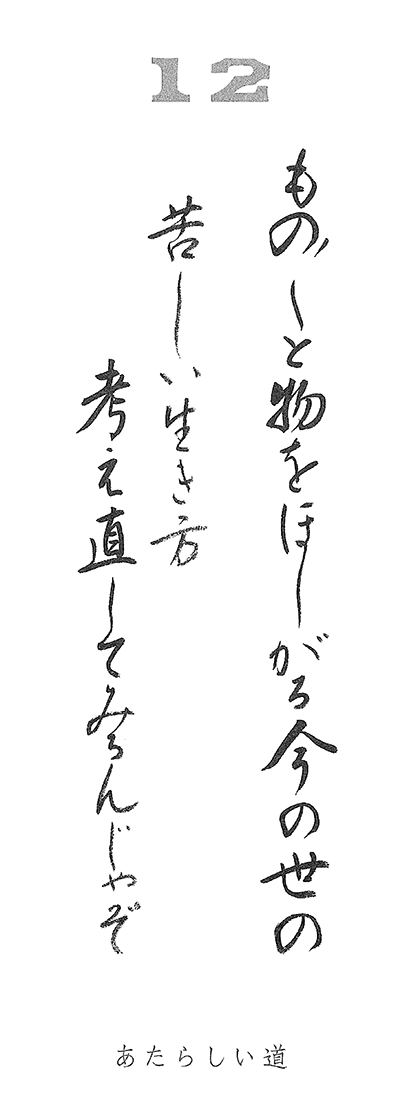 12
もの〳〵と物をほしがる今の世の
苦しい生き方
考え直してみるんじゃぞ
あたらしい道